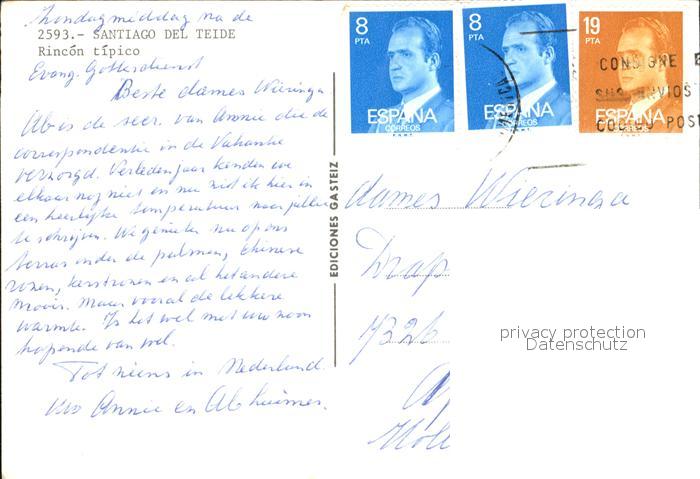 Zondagmiddag na de
2593.- SANTIAGO DEL TEIDE
Rincón típico
Evang. Gottesdienst
Beste dames Wieringa
Ab is de secr. van Annie die de
correspondentie in de Vakantie
verzorgd. Verleden jaar kenden we
elkaar nog niet en nu zit ik hier in
een heerlijke temperatuur naar jullie
te schrijven. We genieten nu op ons
terras onder de palmen, chinese
rozen, kerstrozen en al het andere
moois. Maar vooral de lekkere
warmte. Is het wel met uw
hopende van wel.
Tot ziens in Nederland.
Uw Annie en Ab
EDICIONES GASTEIZ
8
PTA
ESPAÑA
CORREOS
8
PTA
ESPAÑA
CORREOS
19
PTA
ESPAÑA
CORREOS
CONSIGNE E
SUS ENVIOS
CODIGO POST
dames Wieringa
Drap
4326
Hol
privacy protection
Datenschutz